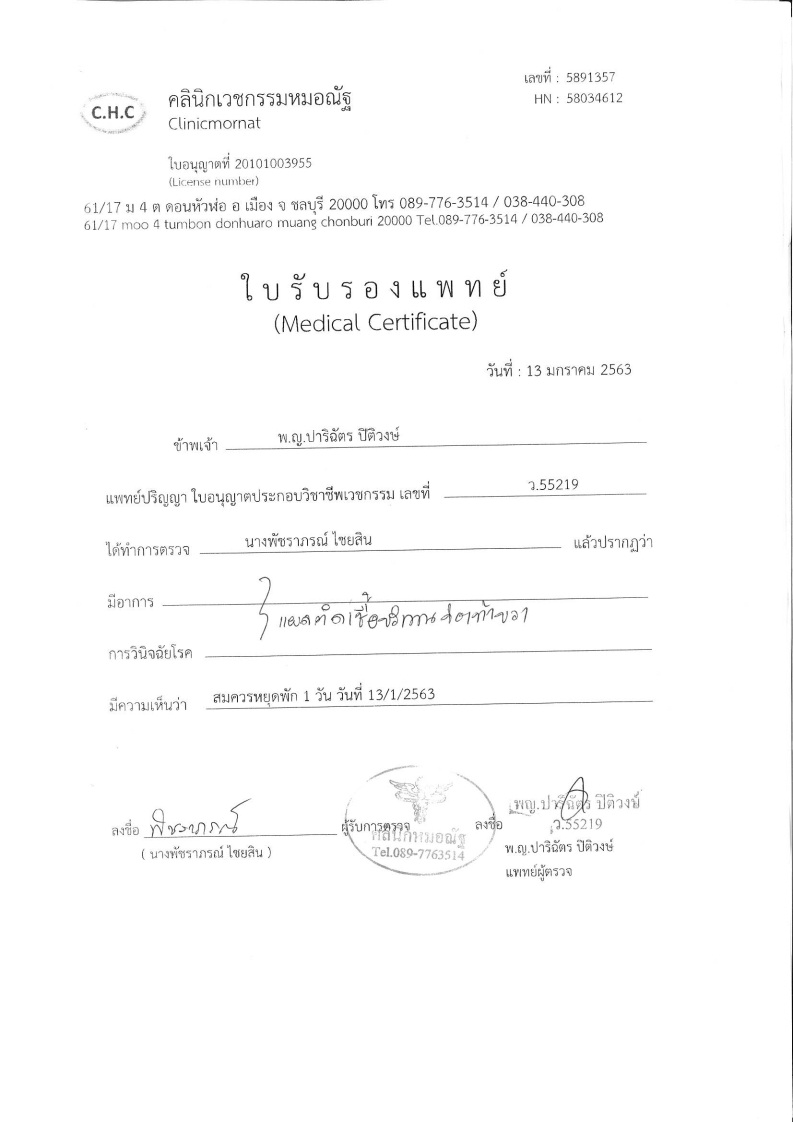 เลขที่ : 5891357
HN : 58034612
C.H.C
คลินิกเวชกรรมหมอณัฐ
Clinicmornat
ใบอนุญาตที่ 20101003955
(License number)
61/17 ม 4 ต ดอนหัวฬ่อ อ เมือง จ ชลบุรี 20000 โทร 089-776-3514 / 038-440-308
61/17 moo 4 tumbon donhuaro muang chonburi 20000 Tel.089-776-3514 / 038-440-308
ใบรับรองแพทย์
(Medical Certificate)
วันที่ : 13 มกราคม 2563
ข้าพเจ้า พ.ญ.ปาริฉัตร ปิติวงษ์
แพทย์ปริญญา ใบอนุญาตประกอบวิชาชีพเวชกรรม เลขที่ ว.55219
ได้ทำการตรวจ นางพัชราภรณ์ ไชยสิน แล้วปรากฏว่า
มีอาการ
แผลติดเชื้อบริเวณ
การวินิจฉัยโรค
มีความเห็นว่า สมควรหยุดพัก 1 วัน วันที่ 13/1/2563
พญ.ปาริฉัตร ปิติวงษ์
ลงชื่อ พัชราภรณ์ ผู้รับการตรวจ ลงชื่อ ว.55219
คลินิกหมอณัฐ
Tel.089-7763514
( นางพัชราภรณ์ ไชยสิน ) พ.ญ.ปาริฉัตร ปิติวงษ์
แพทย์ผู้ตรวจ